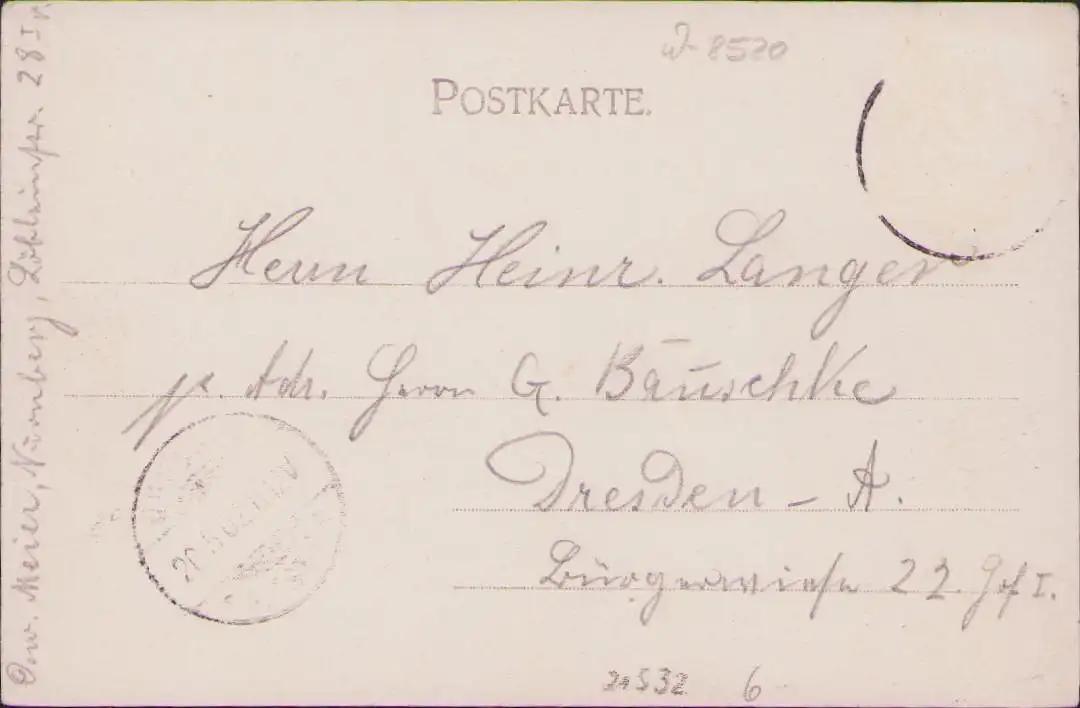 W 8520
POSTKARTE.
Herrn Heinr. Langer
p. Adr. Herrn G. Bäuschke
Dresden - A.
Bürgerwiese 22
Meier, Nürnberg, 28 I
532 6